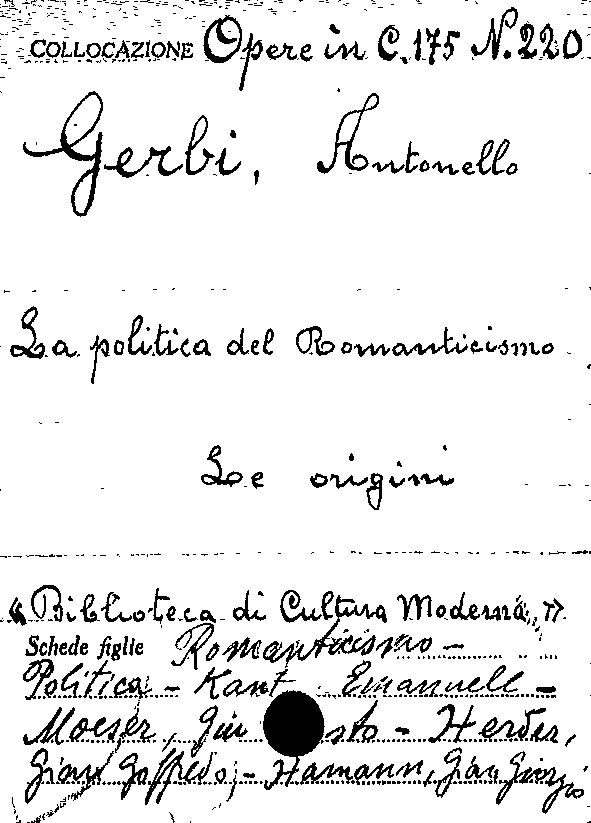 COLLOCAZIONE Opere in C.175 N.220
Gerbi, Antonello
La politica del Romanticismo
Le origini
"Biblioteca di Cultura Moderna,"
Schede figlie Romanticismo -
Politica - Kant Emanuele -
Moeser, Giu sto - Herder,
Gian Goffredo, - Hamann, Gian Giorgio